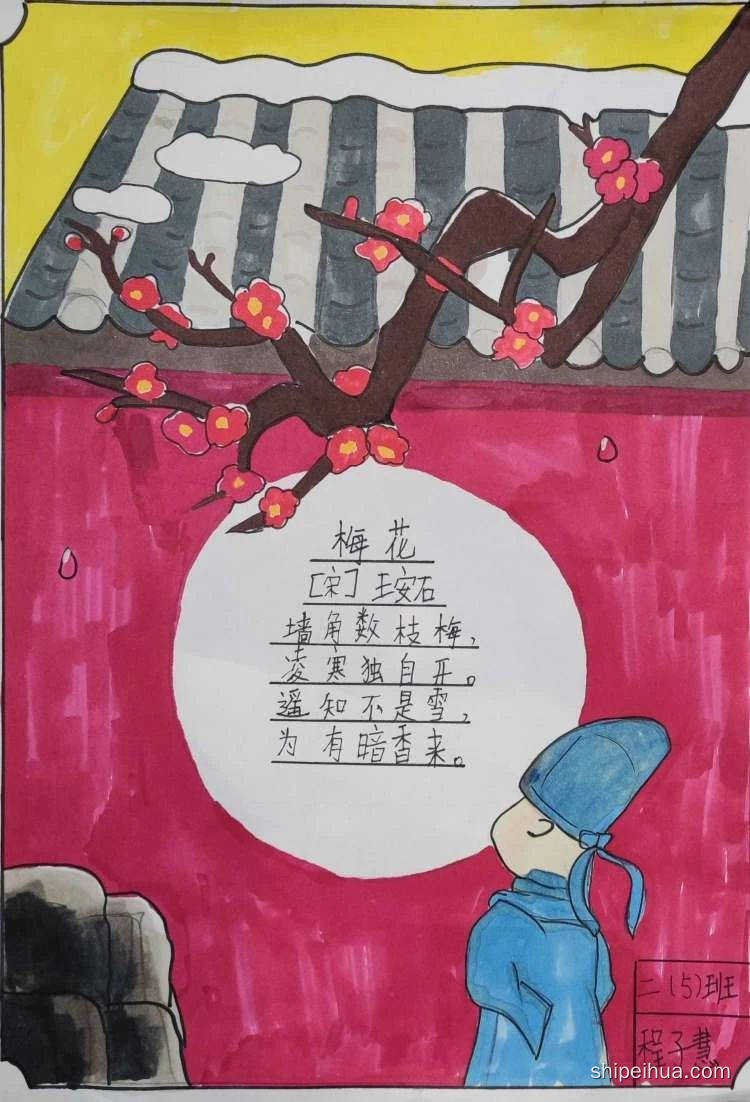 梅花
[宋]王安石
墙角数枝梅,
凌寒独自开。
遥知不是雪,
为有暗香来。
二(5)班
程子慧
shipeihua.com